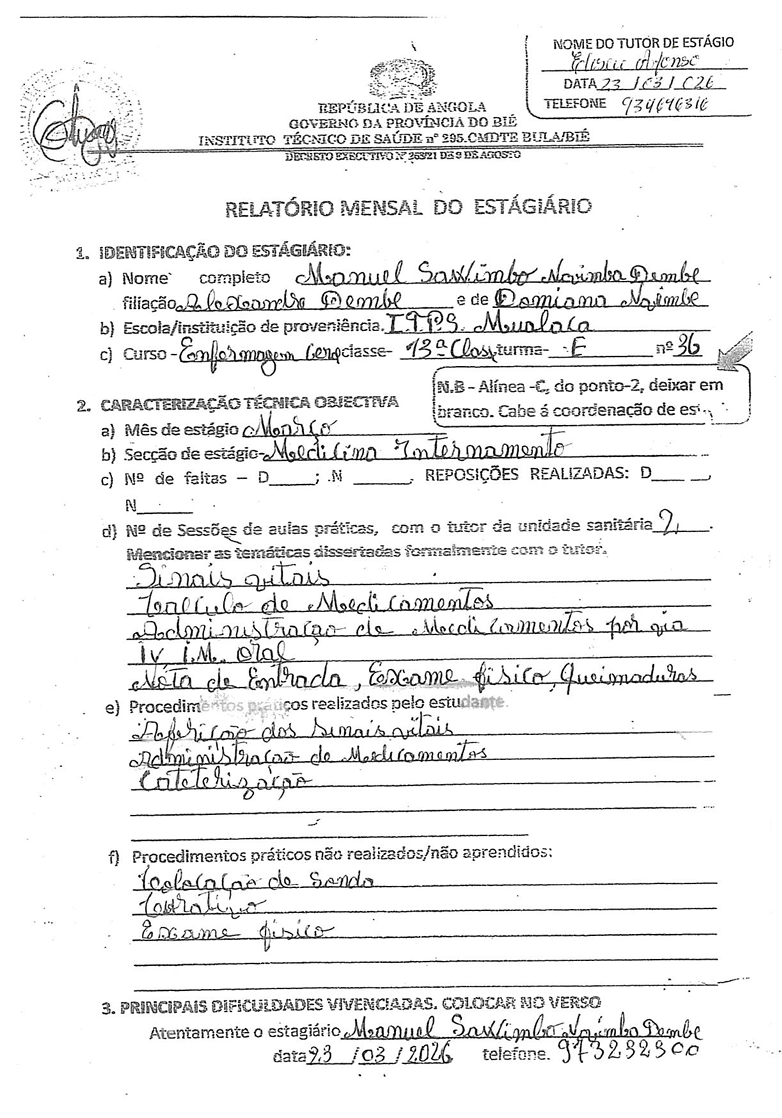 NOME DO TUTOR DE ESTÁGIO
Eliseu Afonso
DATA 23 /03/ 026
TELEFONE 934646316
REPÚBLICA DE ANGOLA
GOVERNO DA PROVÍNCIA DO BIÉ
INSTITUTO TÉCNICO DE SAÚDE nº 295.CMDTE BULA/BIÉ
DECRETO EXECUTIVO Nº 263/21 DE 9 DE AGOSTO
RELATÓRIO MENSAL DO ESTÁGIÁRIO
1. IDENTIFICAÇÃO DO ESTÁGIÁRIO:
a) Nome completo Manuel Savimbo Dembe
filiação Alexandre Dembe e de Domiana
b) Escola/instituição de proveniência. I.T.P.S. Mualaca
c) Curso - Enfermagem Geral classe- 13ª Class turma- E nº 36
N.B - Alínea -C, do ponto-2, deixar em
branco. Cabe á coordenação de es
2. CARACTERIZAÇÃO TÉCNICA OBJECTIVA
a) Mês de estágio Março
b) Secção de estágio- Medicina Internamento
c) Nº de faltas – D____; .N _____, REPOSIÇÕES REALIZADAS: D_____,
N_____
d) Nº de Sessões de aulas práticas, com o tutor da unidade sanitária 2.
Mencionar as temáticas dissertadas formalmente com o tutor.
Sinais vitais
Calculo de Medicamentos
Administração de Medicamentos por via
IV I.M. oral
Nota de Entrada, Exame fisico, Queimaduras
e) Procedimentos práticos realizados pelo estudante.
Aferição dos Sinais vitais
Administração de Medicamentos
Cateterização
f) Procedimentos práticos não realizados/não aprendidos:
Colocação de Sonda
Curativo
Exame fisico
3. PRINCIPAIS DIFICULDADES VIVENCIADAS. COLOCAR NO VERSO
Atentamente o estagiário Manuel Savimbo Dembe
data 23 /03/2026 telefone. 973232300